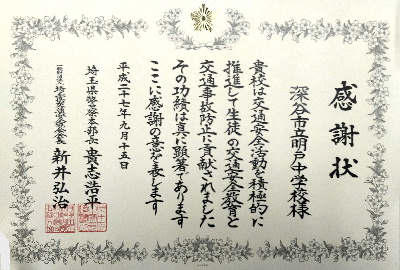 感謝状
深谷市立明戸中学校様
貴校は交通安全活動を積極的に
推進して生徒の交通安全教育と
交通事故防止に貢献されました
その功績は真に顕著であります
ここに感謝の意を表します
平成二十七年九月十五日
埼玉県警察本部長 貴志浩平
新井弘治